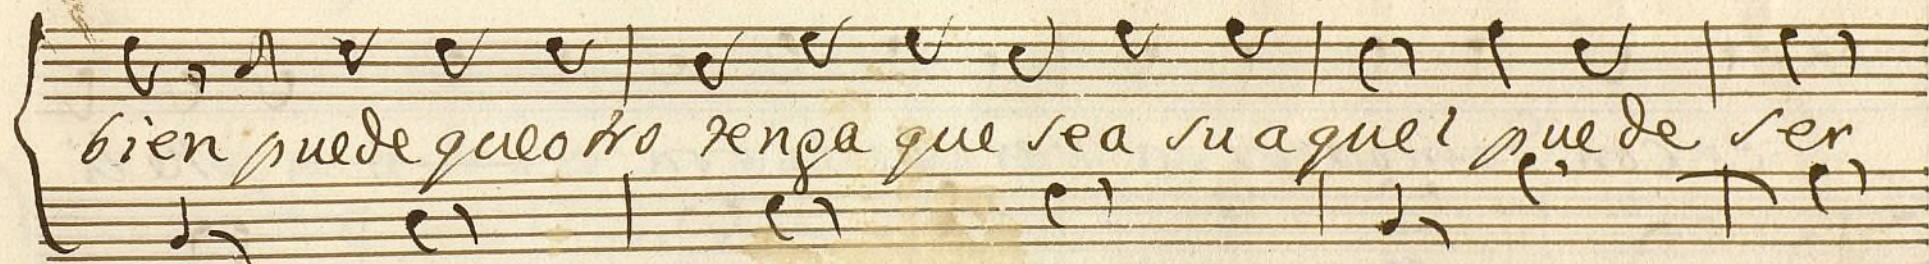 bien puede queotro tenga que sea suaquel puede ser